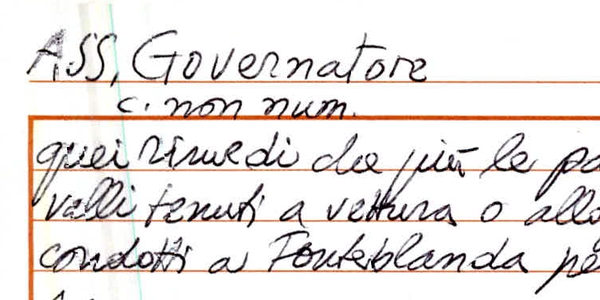 ASS, Governatore
c. non num.
quei rimedi che più le pa
valli tenuti a vettura o allo
condotti a Fonteblanda pe